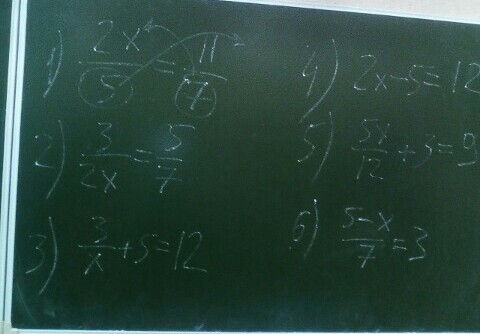 1) 2x/5 = 11/7
2) 3/2x = 5/7
3) 3/x + 5 = 12
4) 2x - 5 = 12
5) 5x/12 + 3 = 9
6) 5-x/7 = 3